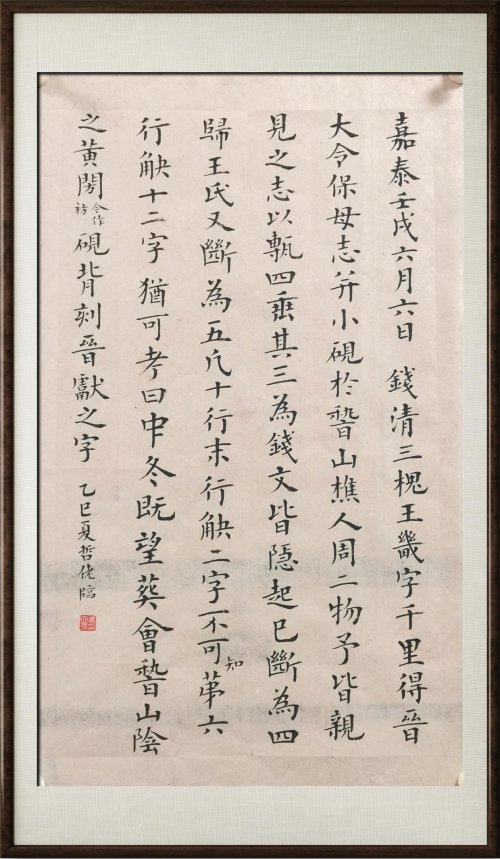 嘉泰壬戌六月六日　錢清三槐王畿字千里得晉
大令保母志并小硯於稽山樵人周二物予皆親
見之志以甎四垂其三為錢文皆隱起已斷為四
歸王氏又斷為五凡十行末行觖二字不可知苐六
行觖十二字猶可考曰中冬既望葬會稽山陰
之黄閍令作祊硯背刻晉獻之字　乙巳夏哲佬臨